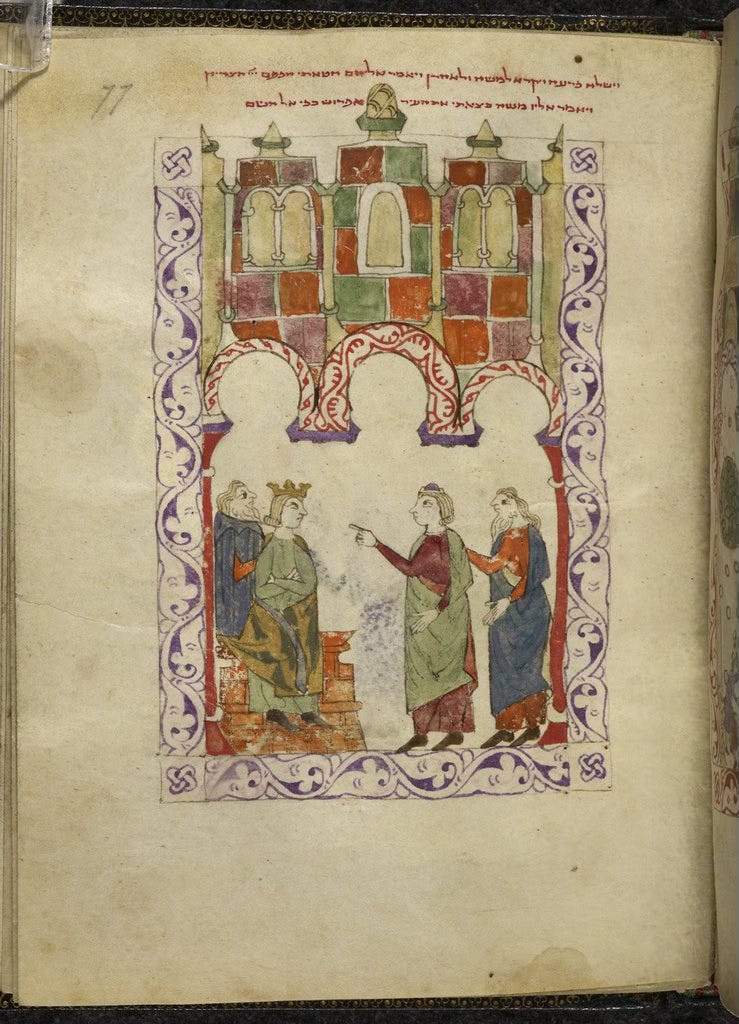 77
וישלח פרעה ויקרא למשה ולאהרן ויאמר אלהם חטאתי הפעם ייי הצדיק
ויאמר אליו משה כצאתי את העיר אפרוש כפי אל השם